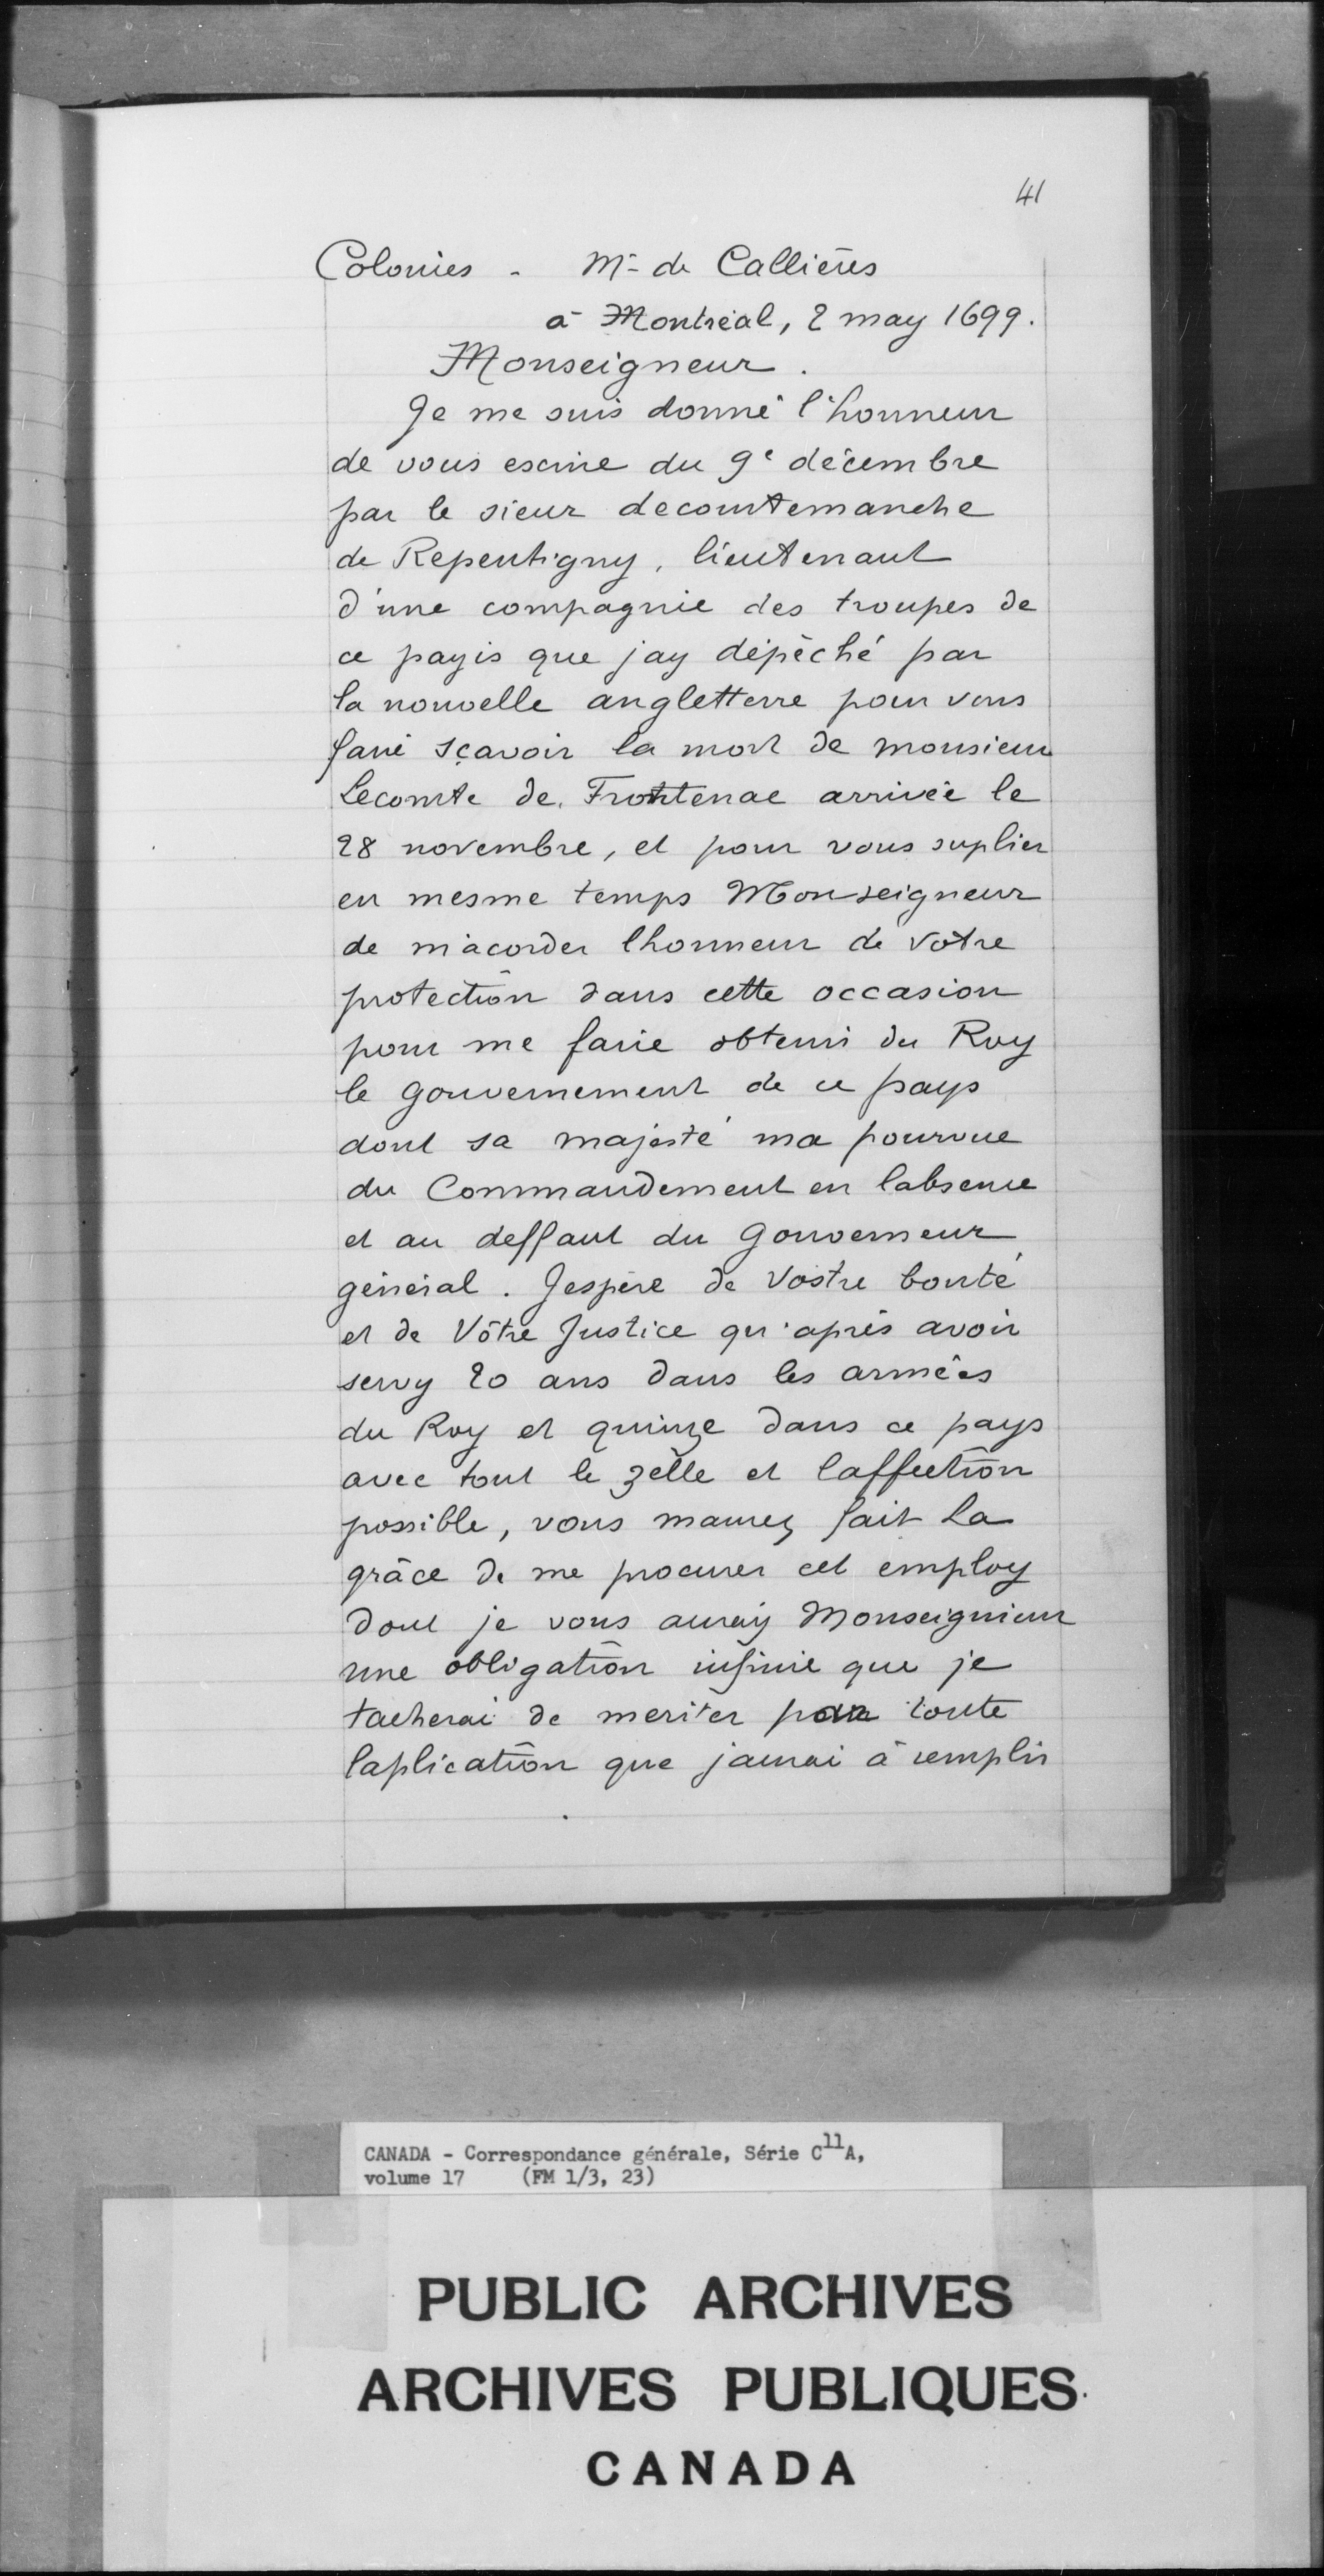 41
Colonies - Mr de Callières
à Montréal, 2 may 1699.
Monseigneur.
Je me suis donné l'honneur
de vous escrire du 9e décembre
par le sieur decourtemanche
de Repentigny, lieutenant
d'une compagnie des troupes de
ce payis que jay dépêché par
la nouvelle angletterre pour vous
faire sçavoir la mort de monsieur
Lecomte de Frontenac arrivée le
28 novembre, et pour vous suplier
en mesme temps Monseigneur
de m'acorder lhonneur de vôtre
protection dans cette occasion
pour me faire obtenir du Roy
le gouvernement de ce pays
dont sa majesté ma pourvue
du Commandement en labsence
et au deffaut du Gouverneur
général. Jespère de Vostre bonté
et de Vôtre Justice qu'après avoir
servy 20 ans dans les armées
du Roy et quinze dans ce pays
avec tout le zèlle et laffection
possible, vous maurez fait La
grâce de me procurer cet employ
dont je vous auray Monseignieur
une obligation infinie que je
tacherai de meriter par toute
laplication que jaurai à remplir
CANADA - Correspondance générale, Série C11A,
volume 17 (FM 1/3, 23)
PUBLIC ARCHIVES
ARCHIVES PUBLIQUES
CANADA